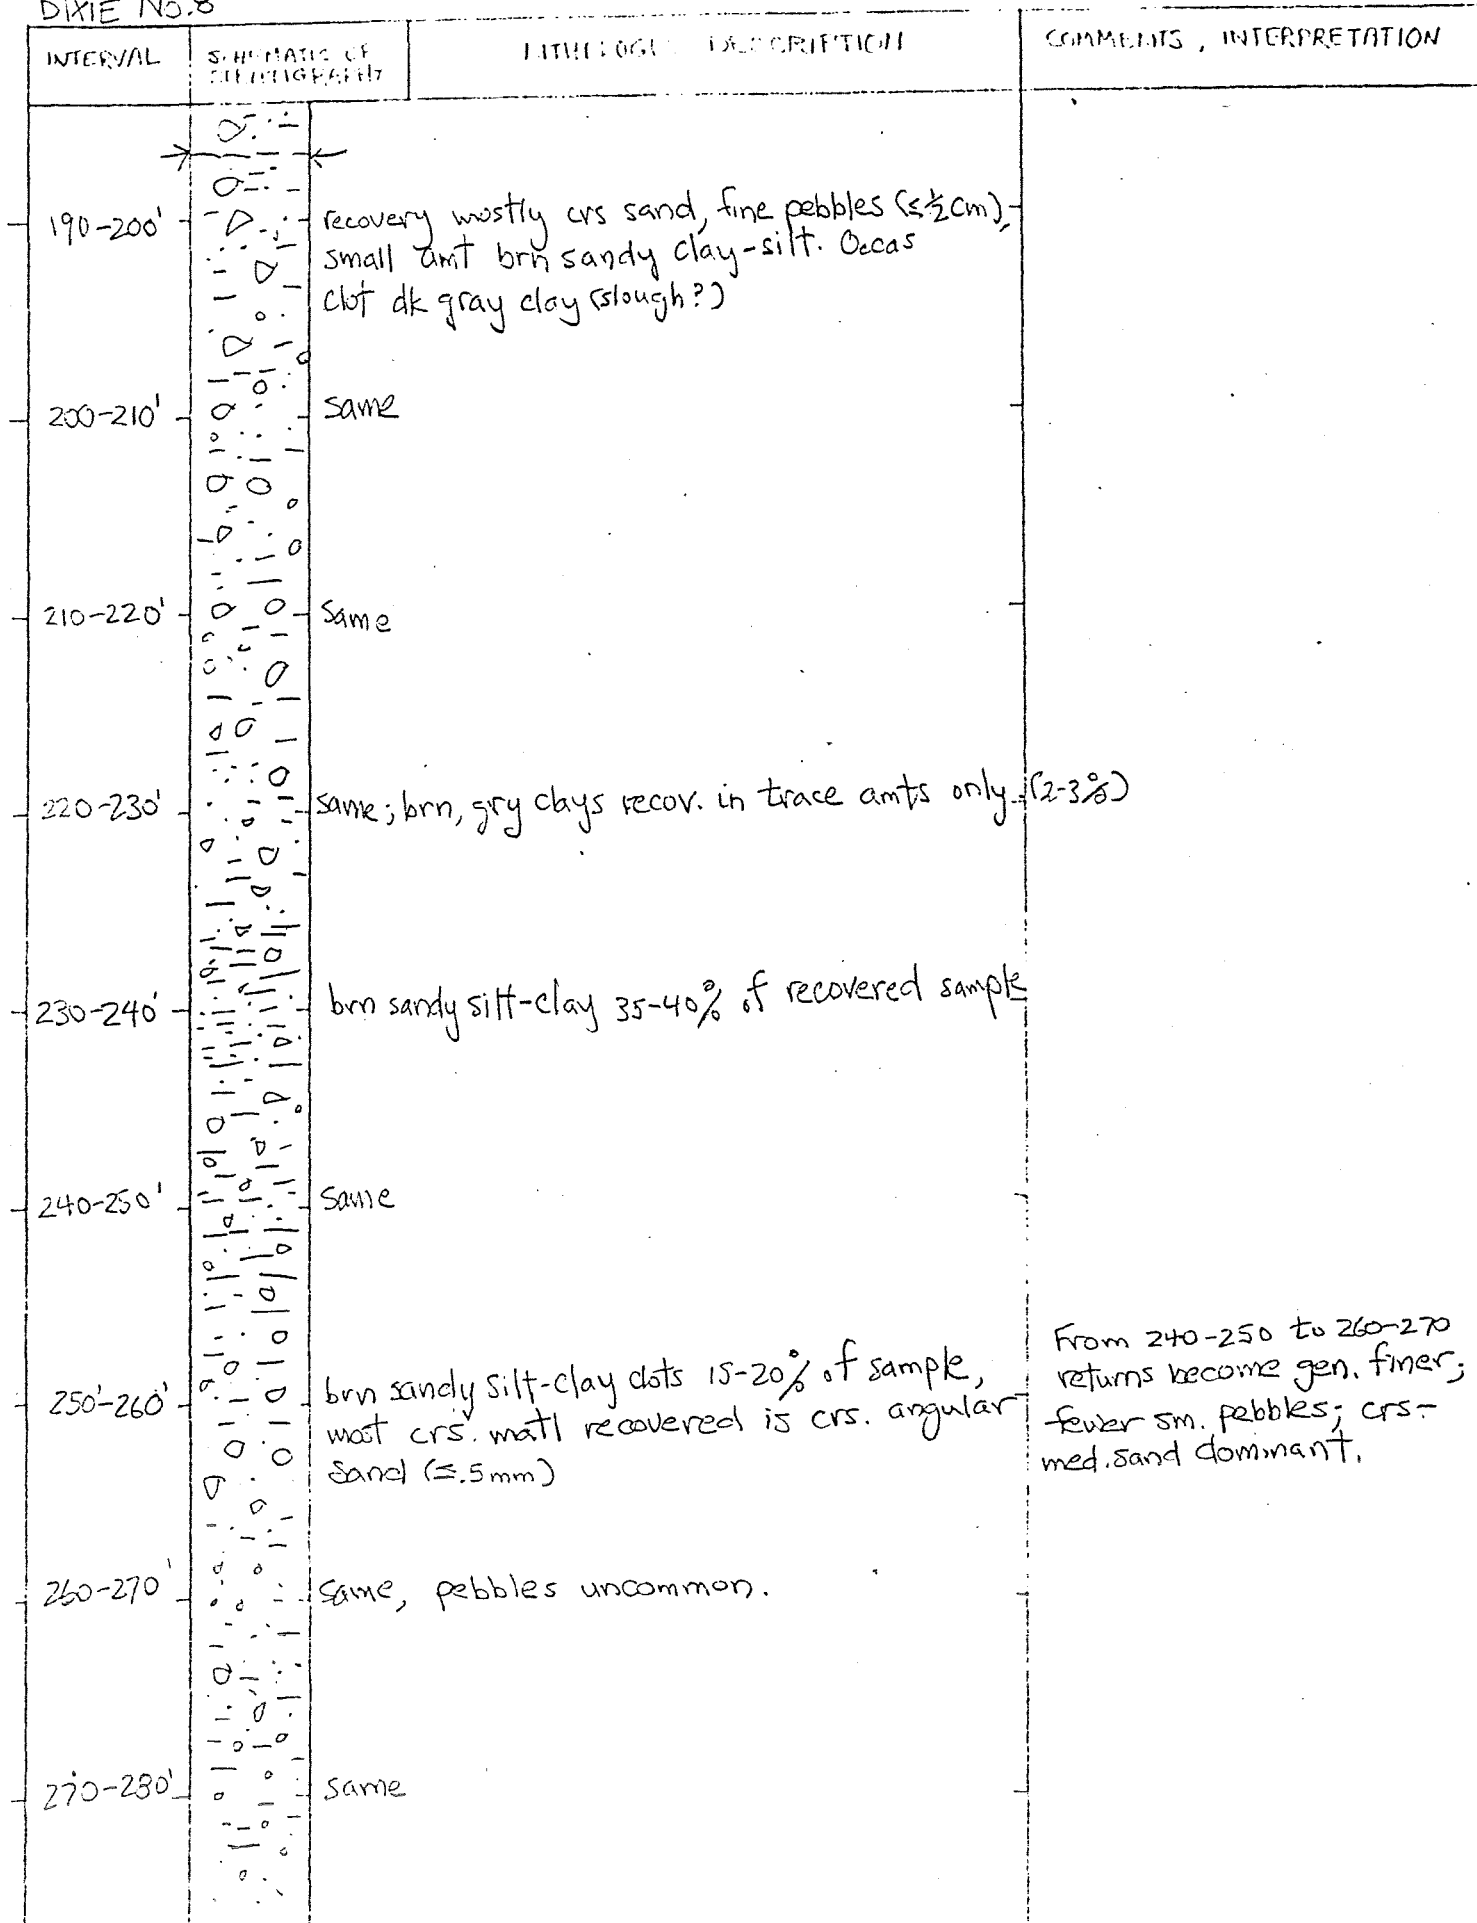 DIXIE NO.8
INTERVAL
SCHEMATIC OF
STRATIGRAPHY
LITHOLOGIC DESCRIPTION
COMMENTS, INTERPRETATION
190-200'
recovery mostly crs sand, fine pebbles (≤½cm),
small amt brn sandy clay-silt. Occas
clot dk gray clay (slough?)
200-210'
same
210-220'
Same
220-230'
same; brn, gry clays recov. in trace amts only. (2-3%)
230-240'
brn sandy silt-clay 35-40% of recovered sample
240-250'
Same
250'-260'
brn sandy silt-clay clots 15-20% of sample,
most crs. matl recovered is crs. angular
sand (≤.5mm)
From 240-250 to 260-270
returns become gen. finer;
fewer sm. pebbles; crs-
med. sand dominant.
260-270'
same, pebbles uncommon.
270-280'
same